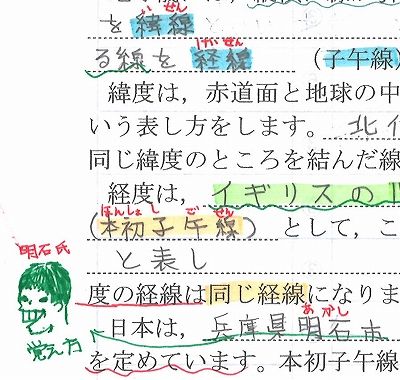 いせん
を緯線
けいせん
る線を 経線 (子午線)
緯度は，赤道面と地球の中
いう表し方をします。北
同じ緯度のところを結んだ線
経度は，イギリスの
ほんしょし ご せん
(本初子午線) として，こ
と表し
明石氏
度の経線は同じ経線になりま
あかし
日本は，兵庫県明石市
覚え方
を定めています。本初子午線